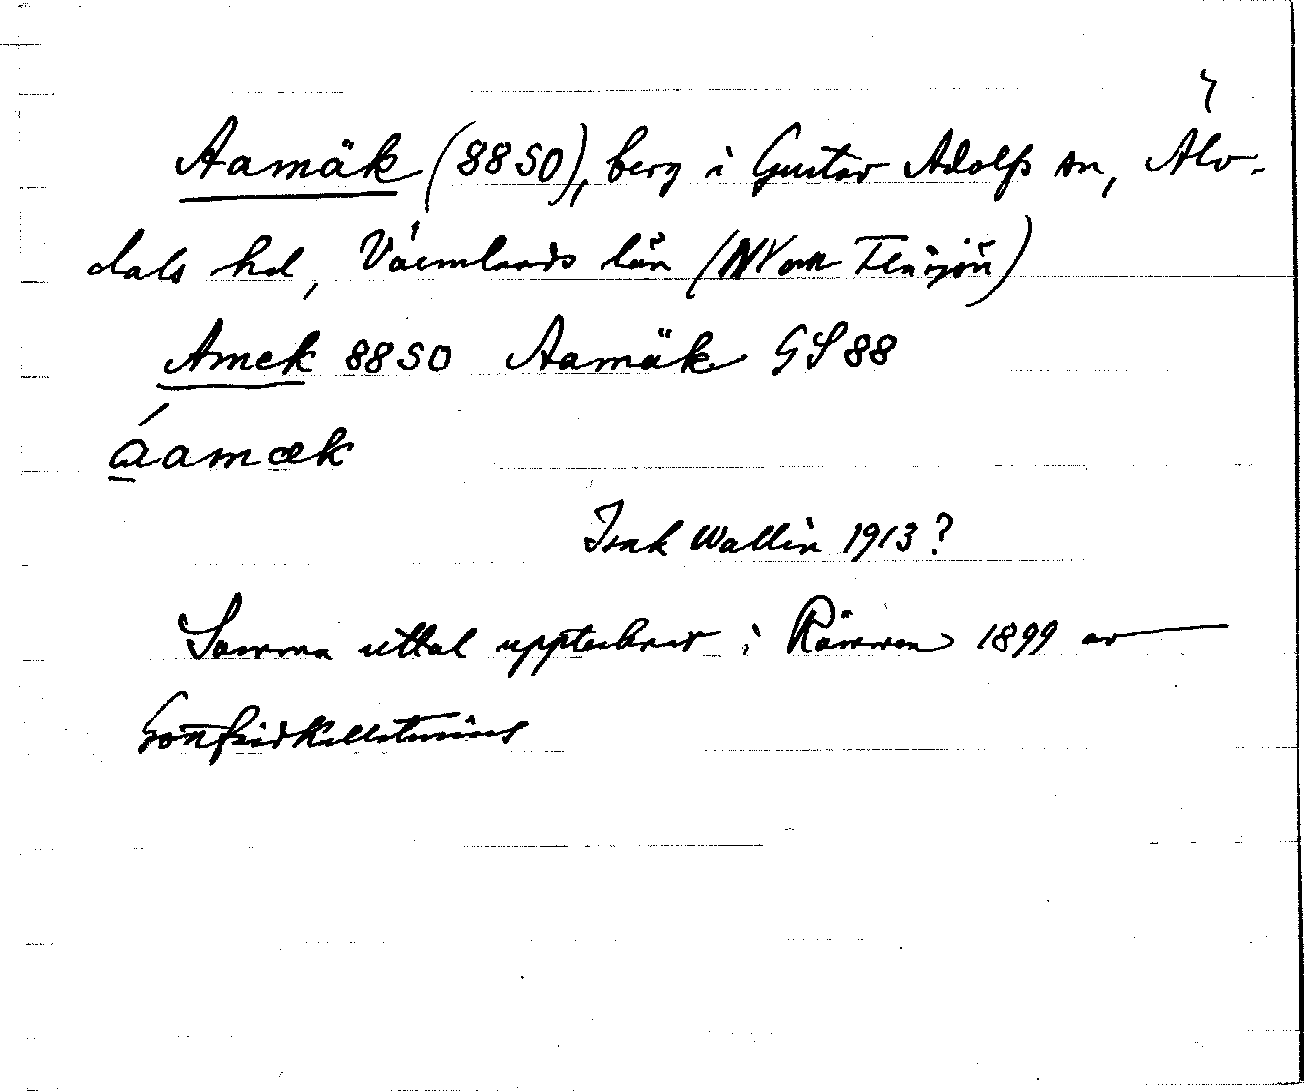 7
Aamäk (88 SO), berg i Gustav Adolfs sn, Älv-
dals hd, Värmlands län (NV om Flåsjön)
Amek 88 SO Aamäk GS 88
áamæk
Isak Wallin 1913?
Samma uttal upptecknat i Rämmen 1899 av
Gottfrid Kallstenius